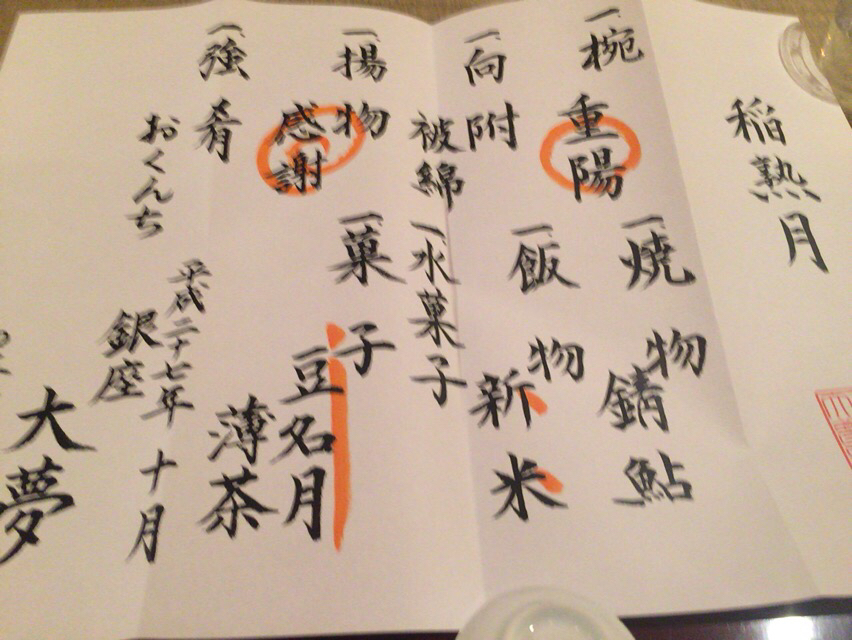 稲熟月
一椀
重陽
一向附
被綿
一揚物
感謝
一強肴
おくんち
一焼物
錆鮎
一飯物
新米
一水菓子
一菓子
豆名月
薄茶
平成二十七年 十月
銀座
大夢